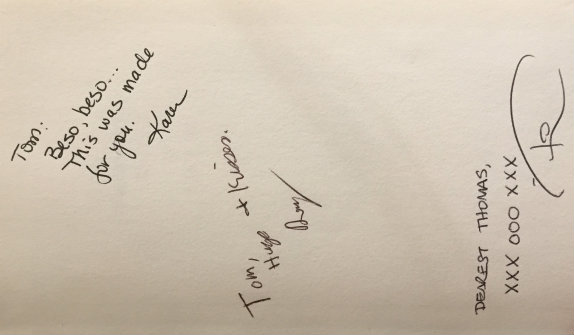 Tom:
Beso, beso...
This was made
for you.
Karen
Tom,
Hugs
+ Kisses.
DEAREST THOMAS,
XXX OOO XXX